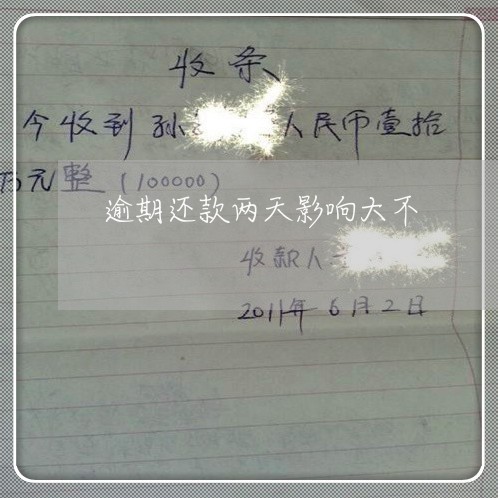 收条
今收到孙 人民币壹拾
万元整(100000)
逾期还款两天影响大不
收款人
2011年6月2日